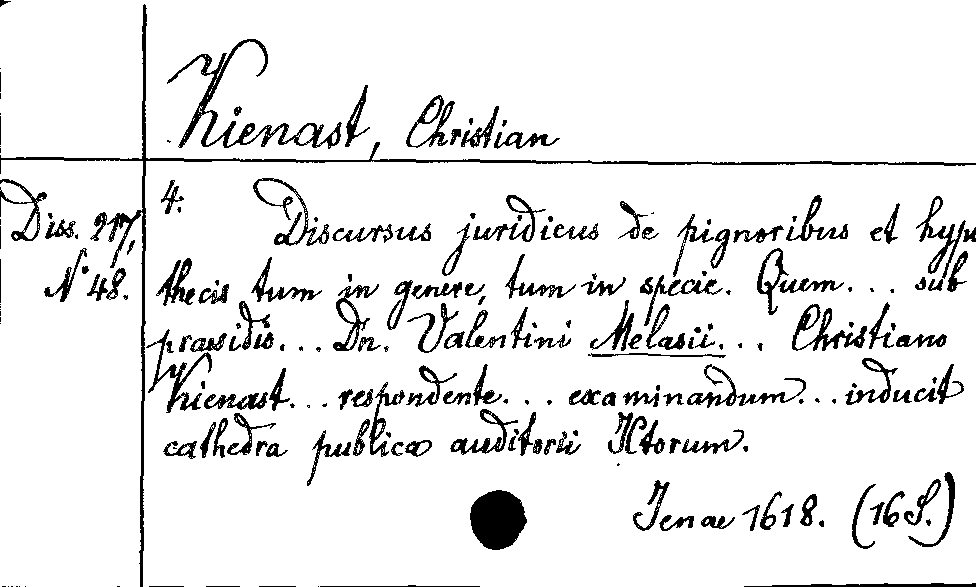 Kienast, Christian
Diss. 217,
N° 48.
4.
Discursus juridicus de pignoribus et hypo
thecis tum in genere, tum in specie. Quem... sub
praesidio... Dn. Valentini Melasii... Christiano
Kienast... respondente... examinandum... inducit
cathedra publica auditorii ICtorum.
Jenae 1618. (16 S.)